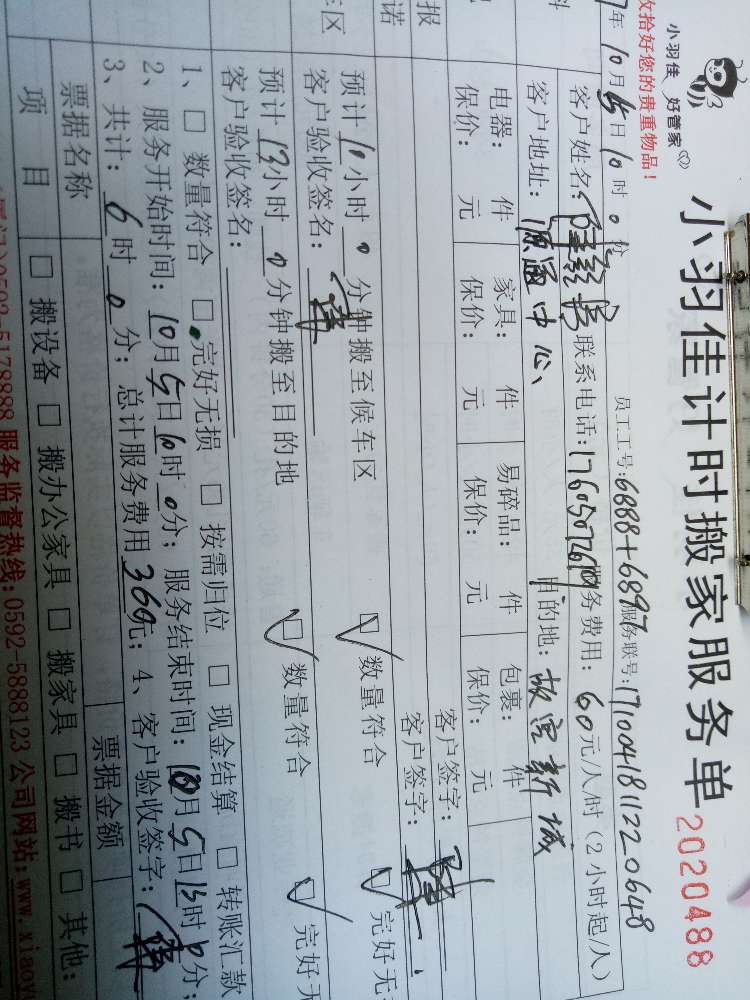 小羽佳 好管家
小羽佳计时搬家服务单 2020488
收拾好您的贵重物品！
员工工号：6888+6897 服务联号：1710041811220648
年 10月 5日 10时 0分
客户姓名： 联系电话： 服务费用：60元/人/时（2小时起/人）
客户地址：源通中心、 目的地：故宫新城
电器： 件 家具： 件 易碎品： 件 包裹： 件
保价： 元 保价： 元 保价： 元 保价： 元
客户签字：
报
诺
客户签字：
车区
预计10小时0分钟搬至候车区 数量符合 完好无
客户验收签名：
预计13小时0分钟搬至目的地 数量符合 完好无
客户验收签名：
1、 数量符合 完好无损 按需归位 现金结算 转账汇款
2、服务开始时间：10月5日10时0分；服务结束时间：10月5日13时0分；
3、共计：6时0分；总计服务费用360元；4、客户验收签字：
票据名称 票据金额
项目 搬设备 搬办公家具 搬家具 搬书 其他：
0592-5178888 服务监督热线：0592-5888123 公司网站：www.xiaoy